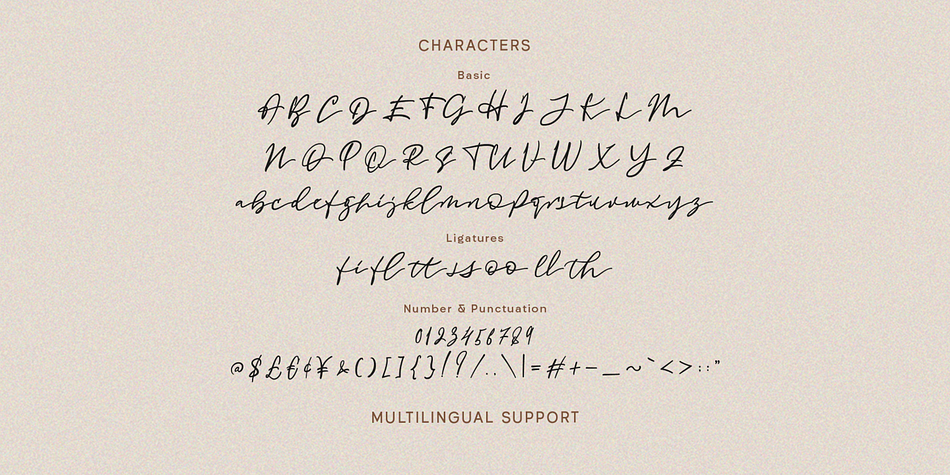 CHARACTERS
Basic
A B C D E F G H I J K L M
N O P Q R S T U V W X Y Z
abcdefghijklmnopqrstuvwxyz
Ligatures
fi fl tt ss oo ll th
Number & Punctuation
0123456789
@$£€¢¥&()[]{}!?/..\|=#+-_~`<>::”
MULTILINGUAL SUPPORT